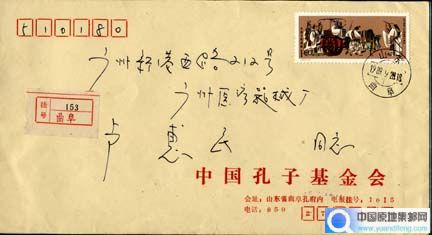 510180
广州
212号
广州医疗器械厂
挂号 153
曲阜
卢惠民 同志
曲阜
中国孔子基金会
会址：山东省曲阜孔府内 电报挂号：1015
电话：050
中国原地集邮网
www.yuandifeng.com